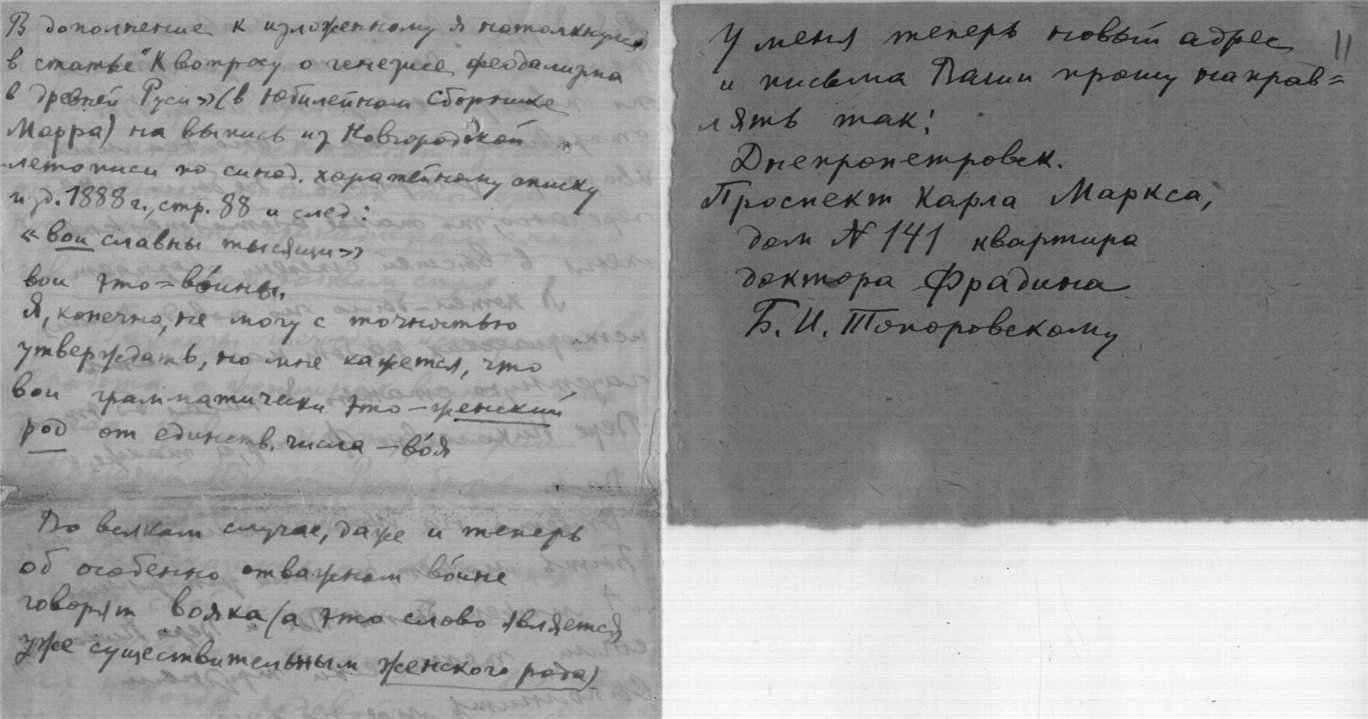 В дополнение к изложенному я натолкнулся
в статье "К вопросу о генезисе феодализма
в древней Руси» (в Юбилейном Сборнике
Марра) на выпись из Новгородской
летописи по синод. харатейному списку
изд. 1888 г., стр. 88 и след:
«вои славны тысящи»
вои это = во́ины.
Я, конечно, не могу с точностью
утверждать, но мне кажется, что
вои грамматически это – женский
род от единств. числа – во́я
Во всяком случае, даже и теперь
об особенно отважном во́ине
говорят вояка (а это слово является
уже существительным женского рода)
У меня теперь новый адрес
и письма Ваши прошу направ=
лять так:
Днепропетровск.
Проспект Карла Маркса,
дом № 141 квартира
доктора Фрадина
Б. И. Топоровскому
11